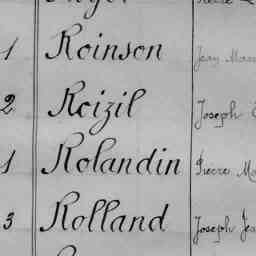 1 Roinson Jean
2 Roizil Joseph
1 Rolandin Pierre
3 Rolland Joseph